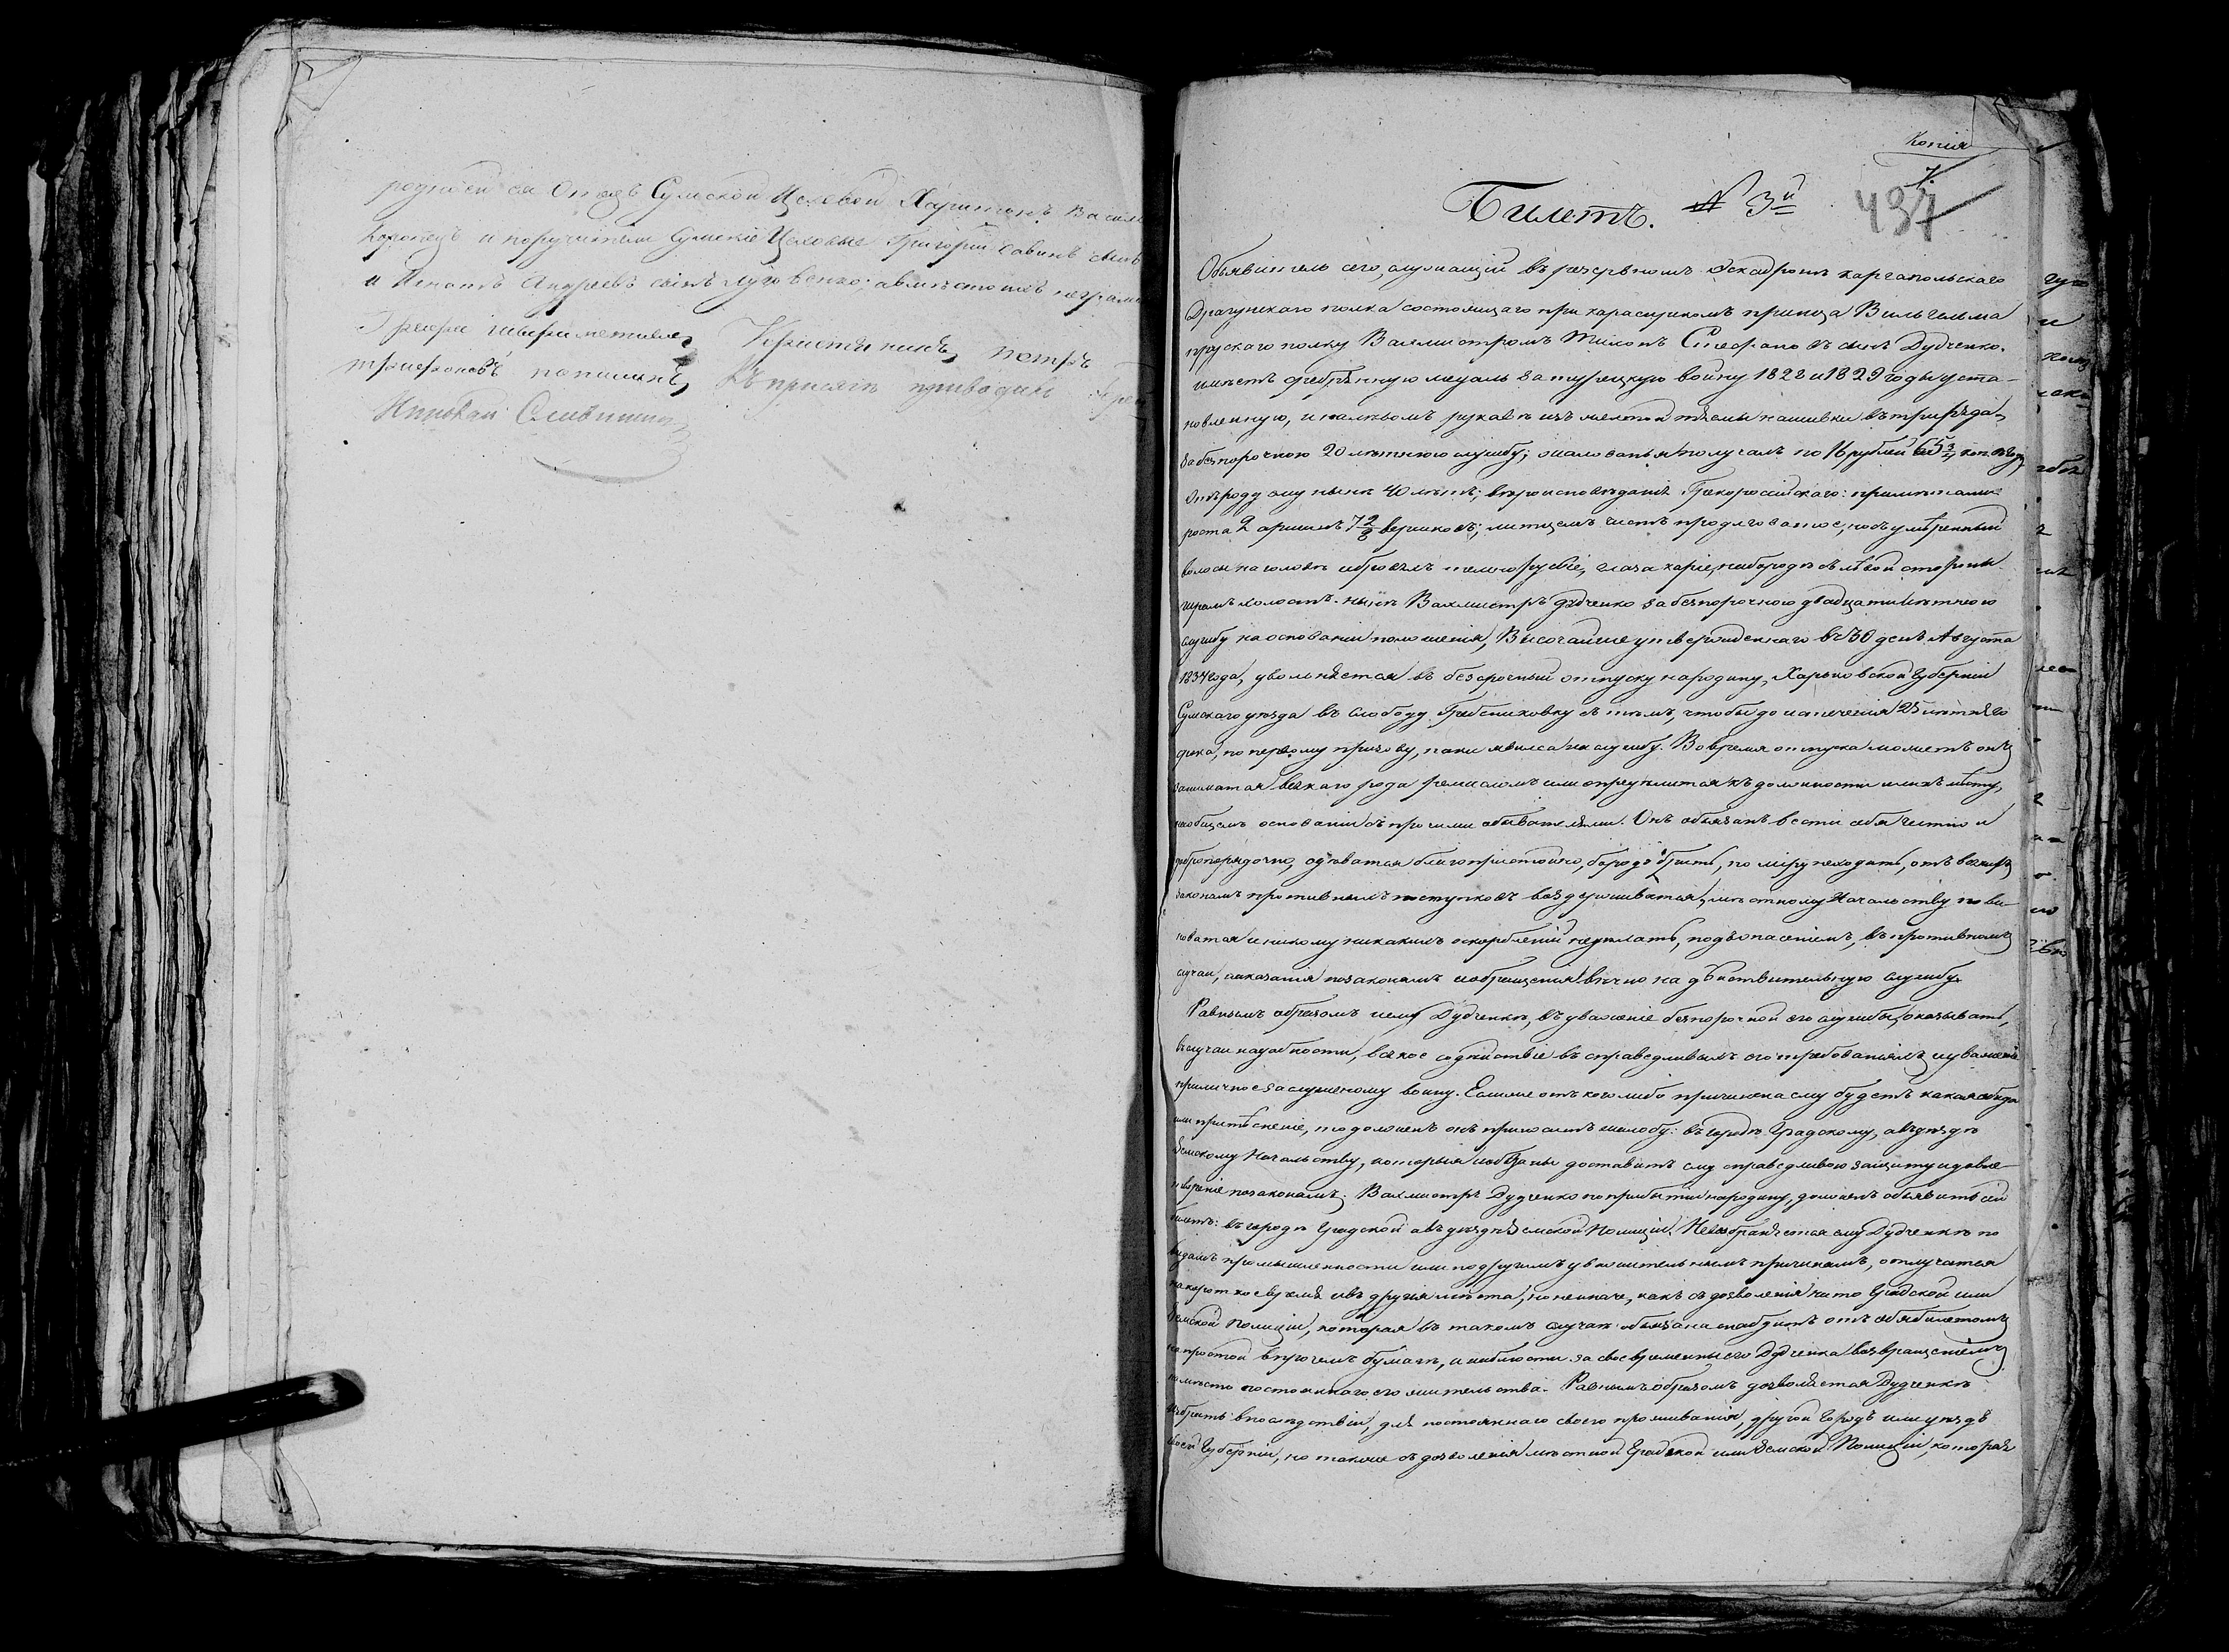 родной ея Отецъ Сумской Цеховой Харитонъ Василь
и поручители Сумскіе Цеховые Григорій Савинъ сынъ
и Андреевъ сынъ Луговенко; а вместо ихъ неграм
Петръ
Къ присяге приводилъ
Николай
Копія
7.
437
Билетъ. № 3й
Объявитель сего, служащій въ резервномъ эскадроне Каргапольскаго
Драгунскаго полка состоящаго при Кирасирскомъ принца Вильгельма
прускаго полку Вахмистромъ Тихонъ Стефановъ сынъ Дудченко.
имеетъ сребрѣнную медаль за турецкую войну 1828 и 1829 годы уста-
новленную, и на лѣвомъ рукавѣ изъ желтой тесьмы нашивки въ три ряда,
за безпорочную 20 лѣтнюю службу; жалованья получалъ по 16 рублей 65¾ коп. въ годъ,
Отъ роду ему нынѣ 40 лѣтъ; вероисповѣданія Грекороссійскаго: примѣтами
роста 2 аршинъ 7 2/8 вершковъ; лицемъ чистъ продлговатое, носъ умѣренный
волосы на голове и бровяхъ темнорусые, глаза каріе, на бороде съ лѣвой стороны
шрамъ холостъ. ныне Вахмистръ Дудченко за безпорочную двадцатилѣтнюю
службу на основаніи положенія, Высочайше утвержденнаго въ 30 день Августа
1834 года, увольняется въ безсрочный отпускъ на родину, Харьковской Губерніи
Сумскаго уѣзда въ слободу Гребениковку съ тѣмъ, чтобы до истеченія 25 лѣтняго
срока, по первому призову, паки явился на службу. Во время отпуска можетъ онъ
заниматся всякаго рода ремесломъ или определится къ должности или къ мѣсту,
на общемъ основаніи съ прочими обывателями. Онъ обязанъ вести себя честно и
добропорядочно, одеватся благопристойно, бороду брить, по міру не ходить, отъ всякихъ
законамъ противныхъ поступковъ воздерживатся, мѣстному Начальству пови-
новатся и никому никакихъ оскорбленій не делать, подъ опасеніемъ, въ противномъ
случаи, наказанія по законамъ и обращенія вѣчно на действительную службу.
Равнымъ образомъ и ему Дудченке, въ уваженіе безпорочной его службы, оказывать,
въ случаи надобности, всякое содействіе въ справедливыхъ его требованіяхъ и уваженіе
приличное заслуженому воину. Если же отъ кого либо причинена ему будетъ какая обида
или притѣсненіе, то долженъ онъ приносить жалобу: въ городе Градскому, а въ уезде
Земскому Начальству, которыя и обязаны доставить ему справедливою защиту и удовле-
твореніе по законамъ. Вахмистръ Дудченко по прибытіи на родину, долженъ объявить сей
билетъ: въ городе Градской а въ уезде Земской Полиціи. Невозбраняется ему Дудченке по
видамъ промышленности или по другимъ уважительнымъ причинамъ, отлучатся
на короткое время и въ другія мѣста, но не иначе, какъ съ дозволенія на то Градской или
Земской Полиціи, которая въ такомъ случае обязана снабдить отъ себя билетомъ
на простой впрочемъ бумаге, и наблюсти за своевременнымъ его Дудченка возвращеніемъ
къ мѣсту постояннаго его жительства. Равнымъ образомъ дозволяется Дудченке
избрать впоследствіи, для постояннаго своего проживанія, другой городъ или уездъ
своей Губерніи, но также съ дозволенія местной Градской или Земской Полиціи, которая